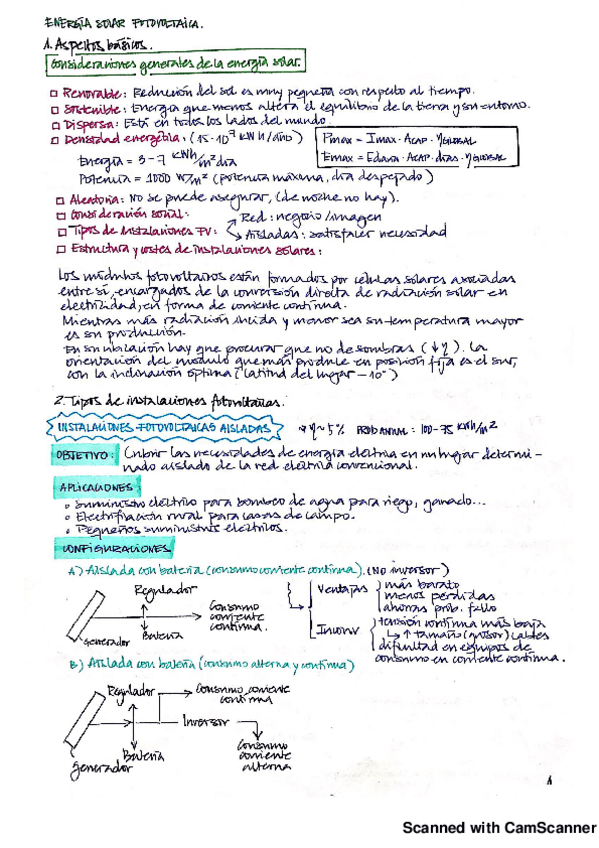 ENERGÍA SOLAR FOTOVOLTAICA.
1. Aspectos básicos.
Consideraciones generales de la energía solar.
□ Renovable: Reducción del sol es muy pequeña con respecto al tiempo.
□ Sostenible: Energía que menos altera el equilibrio de la tierra y su entorno.
□ Dispersa: Está en todos los lados del mundo.
□ Densidad energética: (15·10⁷ kWh/año)
Pmax = Imax · Acap · ηGLOBAL
Emax = Edava · Acap · días · ηGLOBAL
Energía = 5-7 kWh/m² día
Potencia = 1000 W/m² (potencia máxima, día despejado)
□ Aleatoria: No se puede asegurar, (de noche no hay).
□ Consideración social:
□ Tipos de Instalaciones FV:
Red: negocio/imagen
Aisladas: satisfacer necesidad
□ Estructura y costes de instalaciones solares:
Los módulos fotovoltaicos están formados por células solares asociadas
entre sí, encargados de la conversión directa de radiación solar en
electricidad, en forma de corriente continua.
Mientras más radiación incida y menor sea su temperatura mayor
es su producción.
En su ubicación hay que procurar que no de sombras (↓η). La
orientación del modulo que más produce en posición fija es el sur,
con la inclinación óptima (latitud del lugar - 10°)
2. Tipos de instalaciones fotovoltaicas.
INSTALACIONES FOTOVOLTAICAS AISLADAS → η ~ 5% PROD ANUAL: 100-75 kWh/m²
OBJETIVO: Cubrir las necesidades de energía eléctrica en un lugar determi-
nado aislado de la red eléctrica convencional.
APLICACIONES:
o Suministro eléctrico para bombeo de agua para riego, ganado...
o Electrificación rural para casas de campo.
o Pequeños suministros eléctricos.
CONFIGURACIONES
A) Aislada con batería (consumo corriente continua). (No inversor)
Regulador
Batería
Generador
Consumo
corriente
continua.
Ventajas
más barato
menos pérdidas
ahorras prob. fallo
Inconv
tensión continua más baja
↳ ↑ tamaño (grosor) cables
dificultad en equipos de
consumo en corriente continua.
B) Aislada con batería (consumo alterna y continua)
Regulador
Consumo corriente
continua
Inversor
Batería
Generador
Consumo
corriente
alterna
1
Scanned with CamScanner